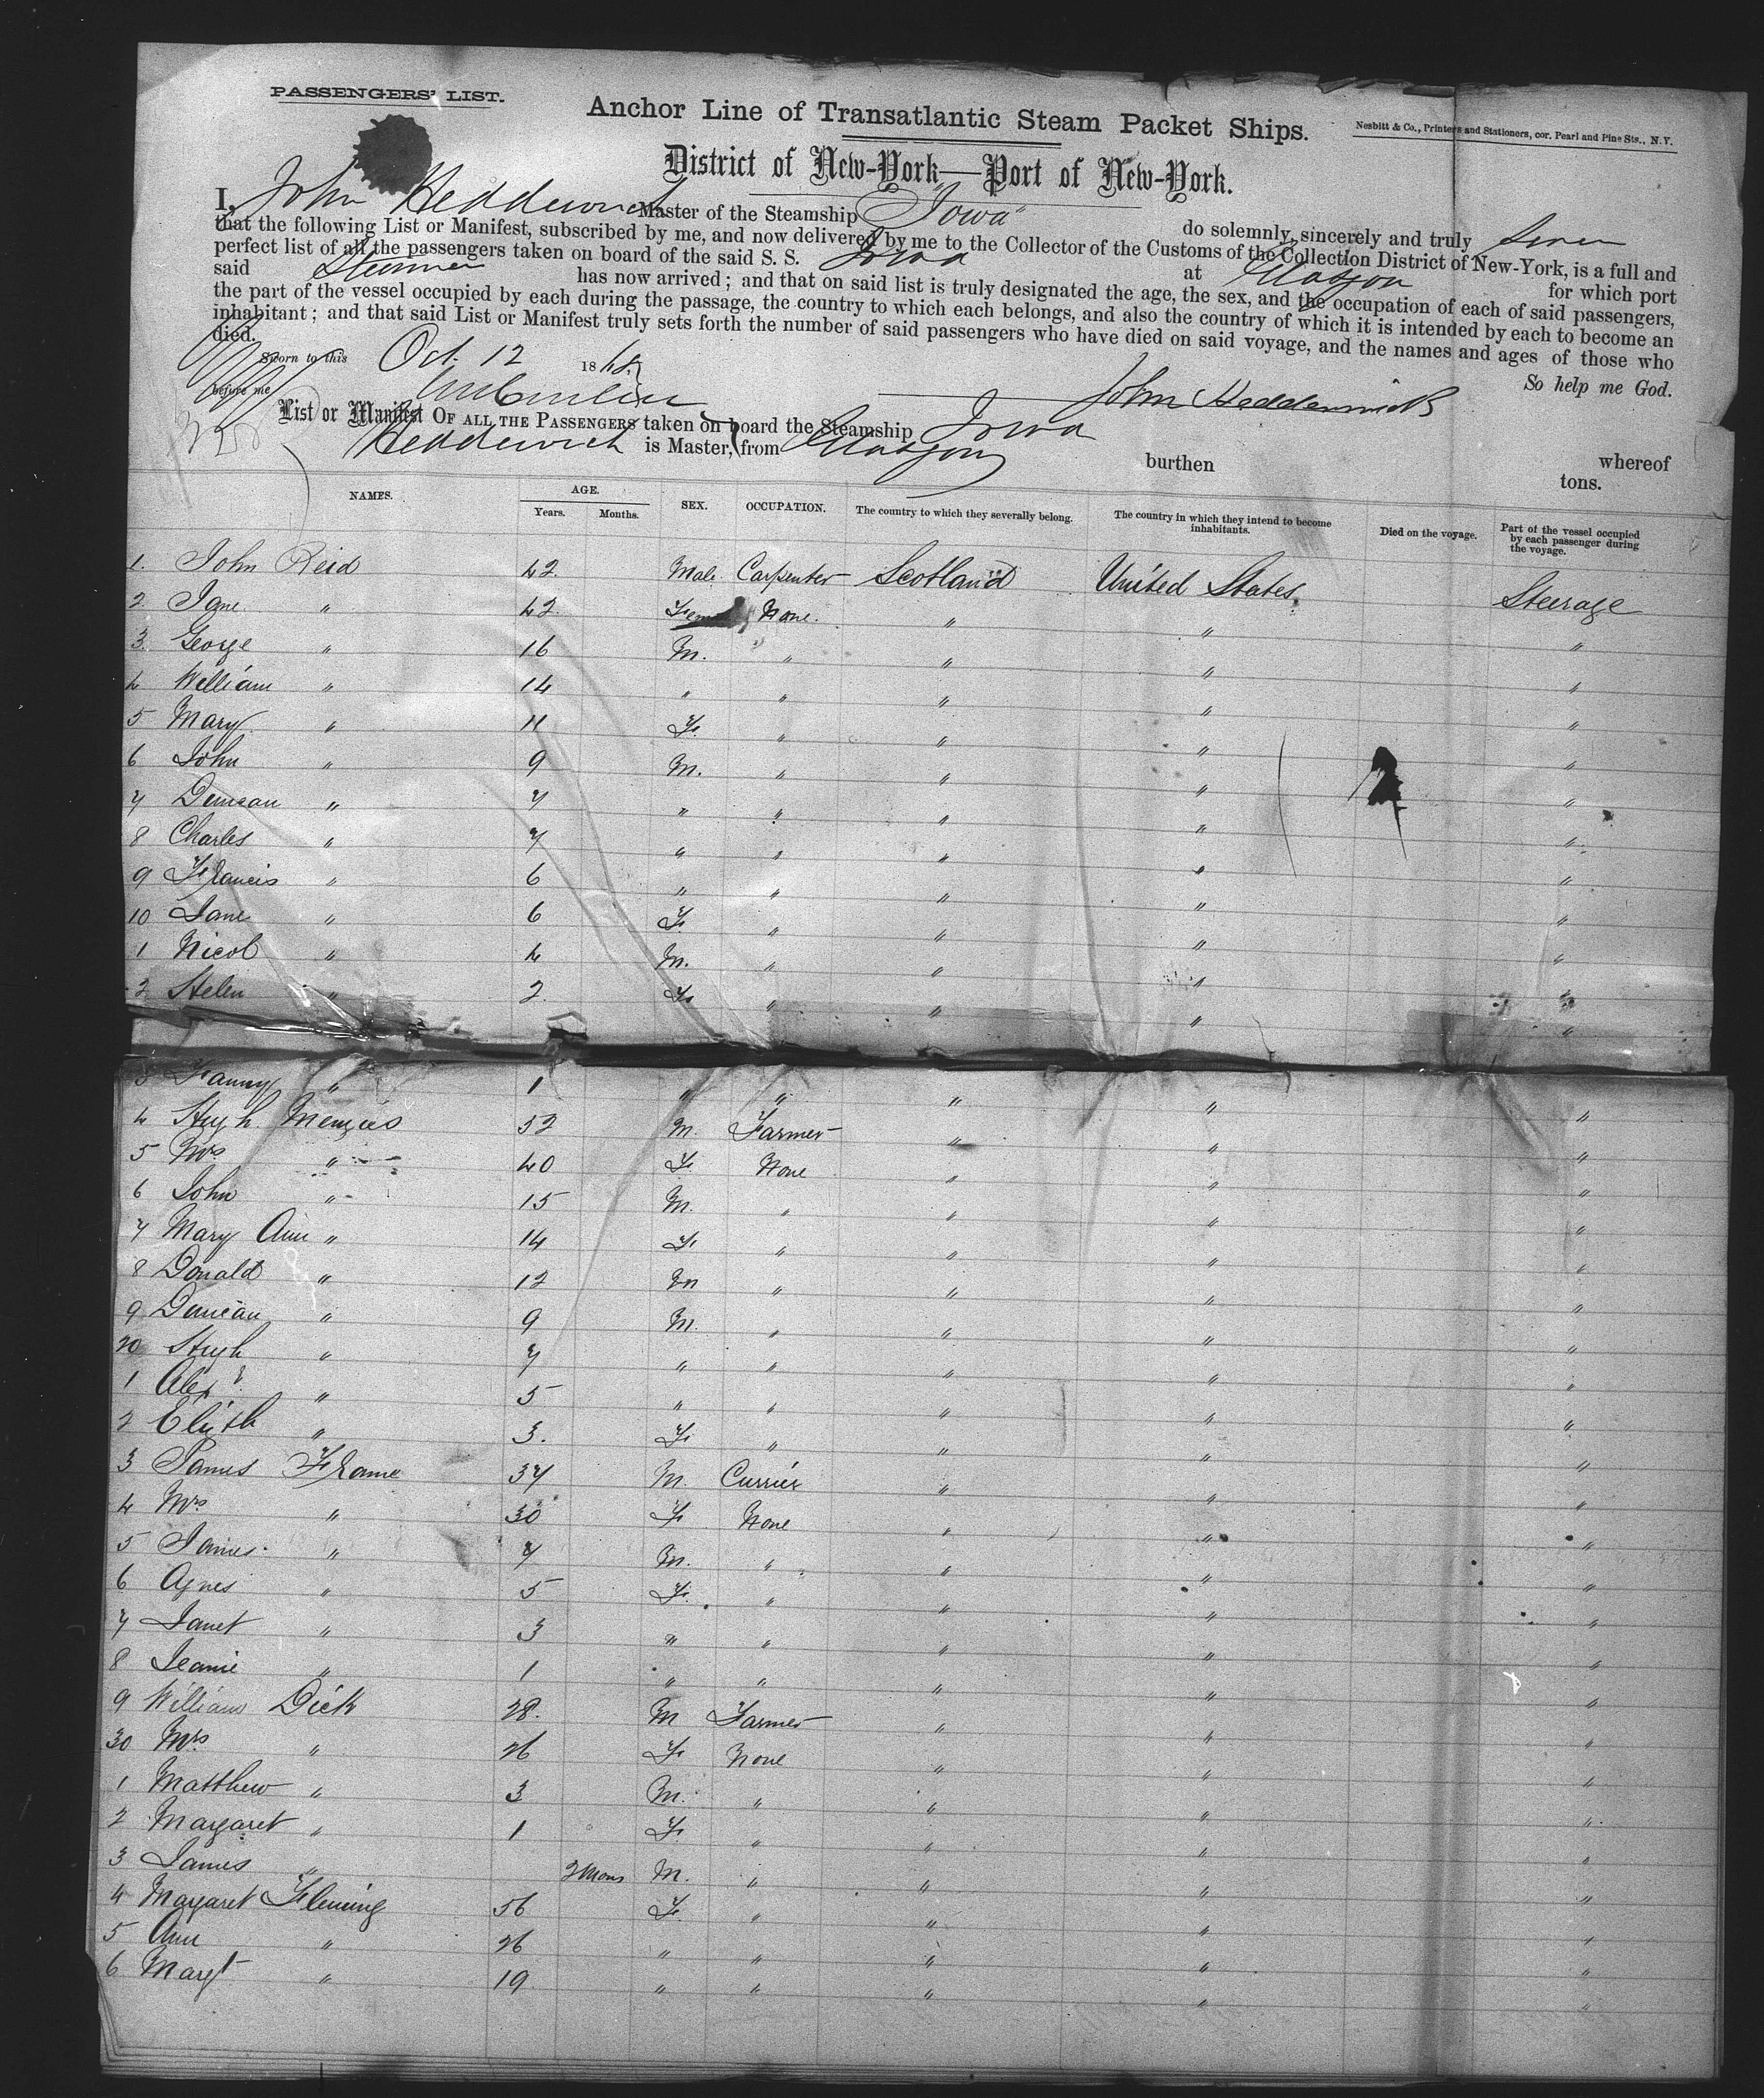 PASSENGERS' LIST.
Anchor Line of Transatlantic Steam Packet Ships.
Nesbitt & Co., Printers and Stationers, cor. Pearl and Pine Sts., N.Y.
District of New-York—Port of New-York.
I, John Hedderwick Master of the Steamship "Iowa" do solemnly, sincerely and truly swear
that the following List or Manifest, subscribed by me, and now delivered by me to the Collector of the Customs of the Collection District of New-York, is a full and
perfect list of all the passengers taken on board of the said S. S. Iowa at Glasgow for which port
said Steamer has now arrived; and that on said list is truly designated the age, the sex, and the occupation of each of said passengers,
the part of the vessel occupied by each during the passage, the country to which each belongs, and also the country of which it is intended by each to become an
inhabitant; and that said List or Manifest truly sets forth the number of said passengers who have died on said voyage, and the names and ages of those who
died.
So help me God.
Sworn to this Oct. 12 1868
before me
John Hedderwick
List or Manifest OF ALL THE PASSENGERS taken on board the Steamship Iowa whereof
Hedderwick is Master, from Glasgow burthen tons.
NAMES. AGE. SEX. OCCUPATION. The country to which they severally belong. The country in which they intend to become inhabitants. Died on the voyage. Part of the vessel occupied by each passenger during the voyage.
Years. Months.
1. John Reid 42. Male Carpenter Scotland United States Steerage
2. Jane " 42. Fem None. " " "
3. George " 16 M. " " " "
4 William " 14 " " " " "
5 Mary " 11 F. " " " "
6 John " 9 M. " " " "
7 Duncan " 7 " " " " "
8 Charles " 7 " " " " "
9 Francis " 6 " " " " "
10 Jane " 6 F. " " " "
1 Nicol " 4 M. " " " "
2 Helen " 2. F. " " " "
3 Fanny " 1 " " " " "
4 Hugh Menzies 52 M. Farmer " " "
5 Mrs " 40 F. None " " "
6 John " 15 M. " " " "
7 Mary Ann " 14 F. " " " "
8 Donald " 12 M " " " "
9 Duncan " 9 M. " " " "
20 Hugh " 7 " " " " "
1 Alexr. " 5 " " " " "
2 Elizth " 3. F. " " " "
3 James Frame 37 M. Currier " " "
4 Mrs " 30 F. None " " "
5 James " 7 M. " " " "
6 Agnes " 5 F. " " " "
7 Janet " 3 " " " " "
8 Jeanie " 1 " " " " "
9 William Dick 28. M Farmer " " "
30 Mrs " 26 F. None " " "
1 Matthew " 3 M. " " " "
2 Margaret " 1 F. " " " "
3 James " 2 Mons M. " " " "
4 Margaret Fleming 56 F. " " " "
5 Ann " 26 " " " " "
6 Margt " 19. " " " " "